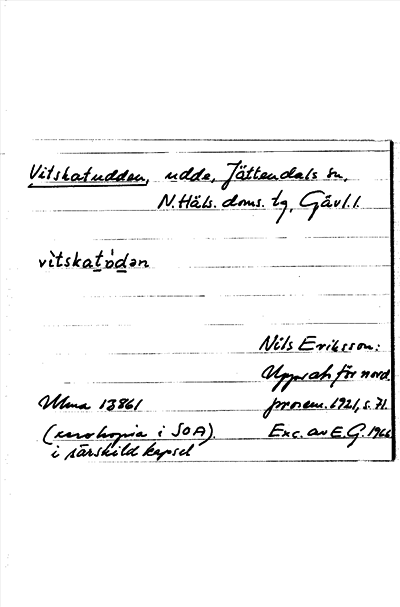 Vitskatudden, udde, Jättendals sn,
N. Häls. doms. tg, Gävl. l.
vìtskatùdən
Nils Eriksson:
Uppsats för nord.
Ulma 13861 prosem. 1921, s. 71.
(xerokopia i SOA). Exc. av E.G. 1966
i särskild kapsel